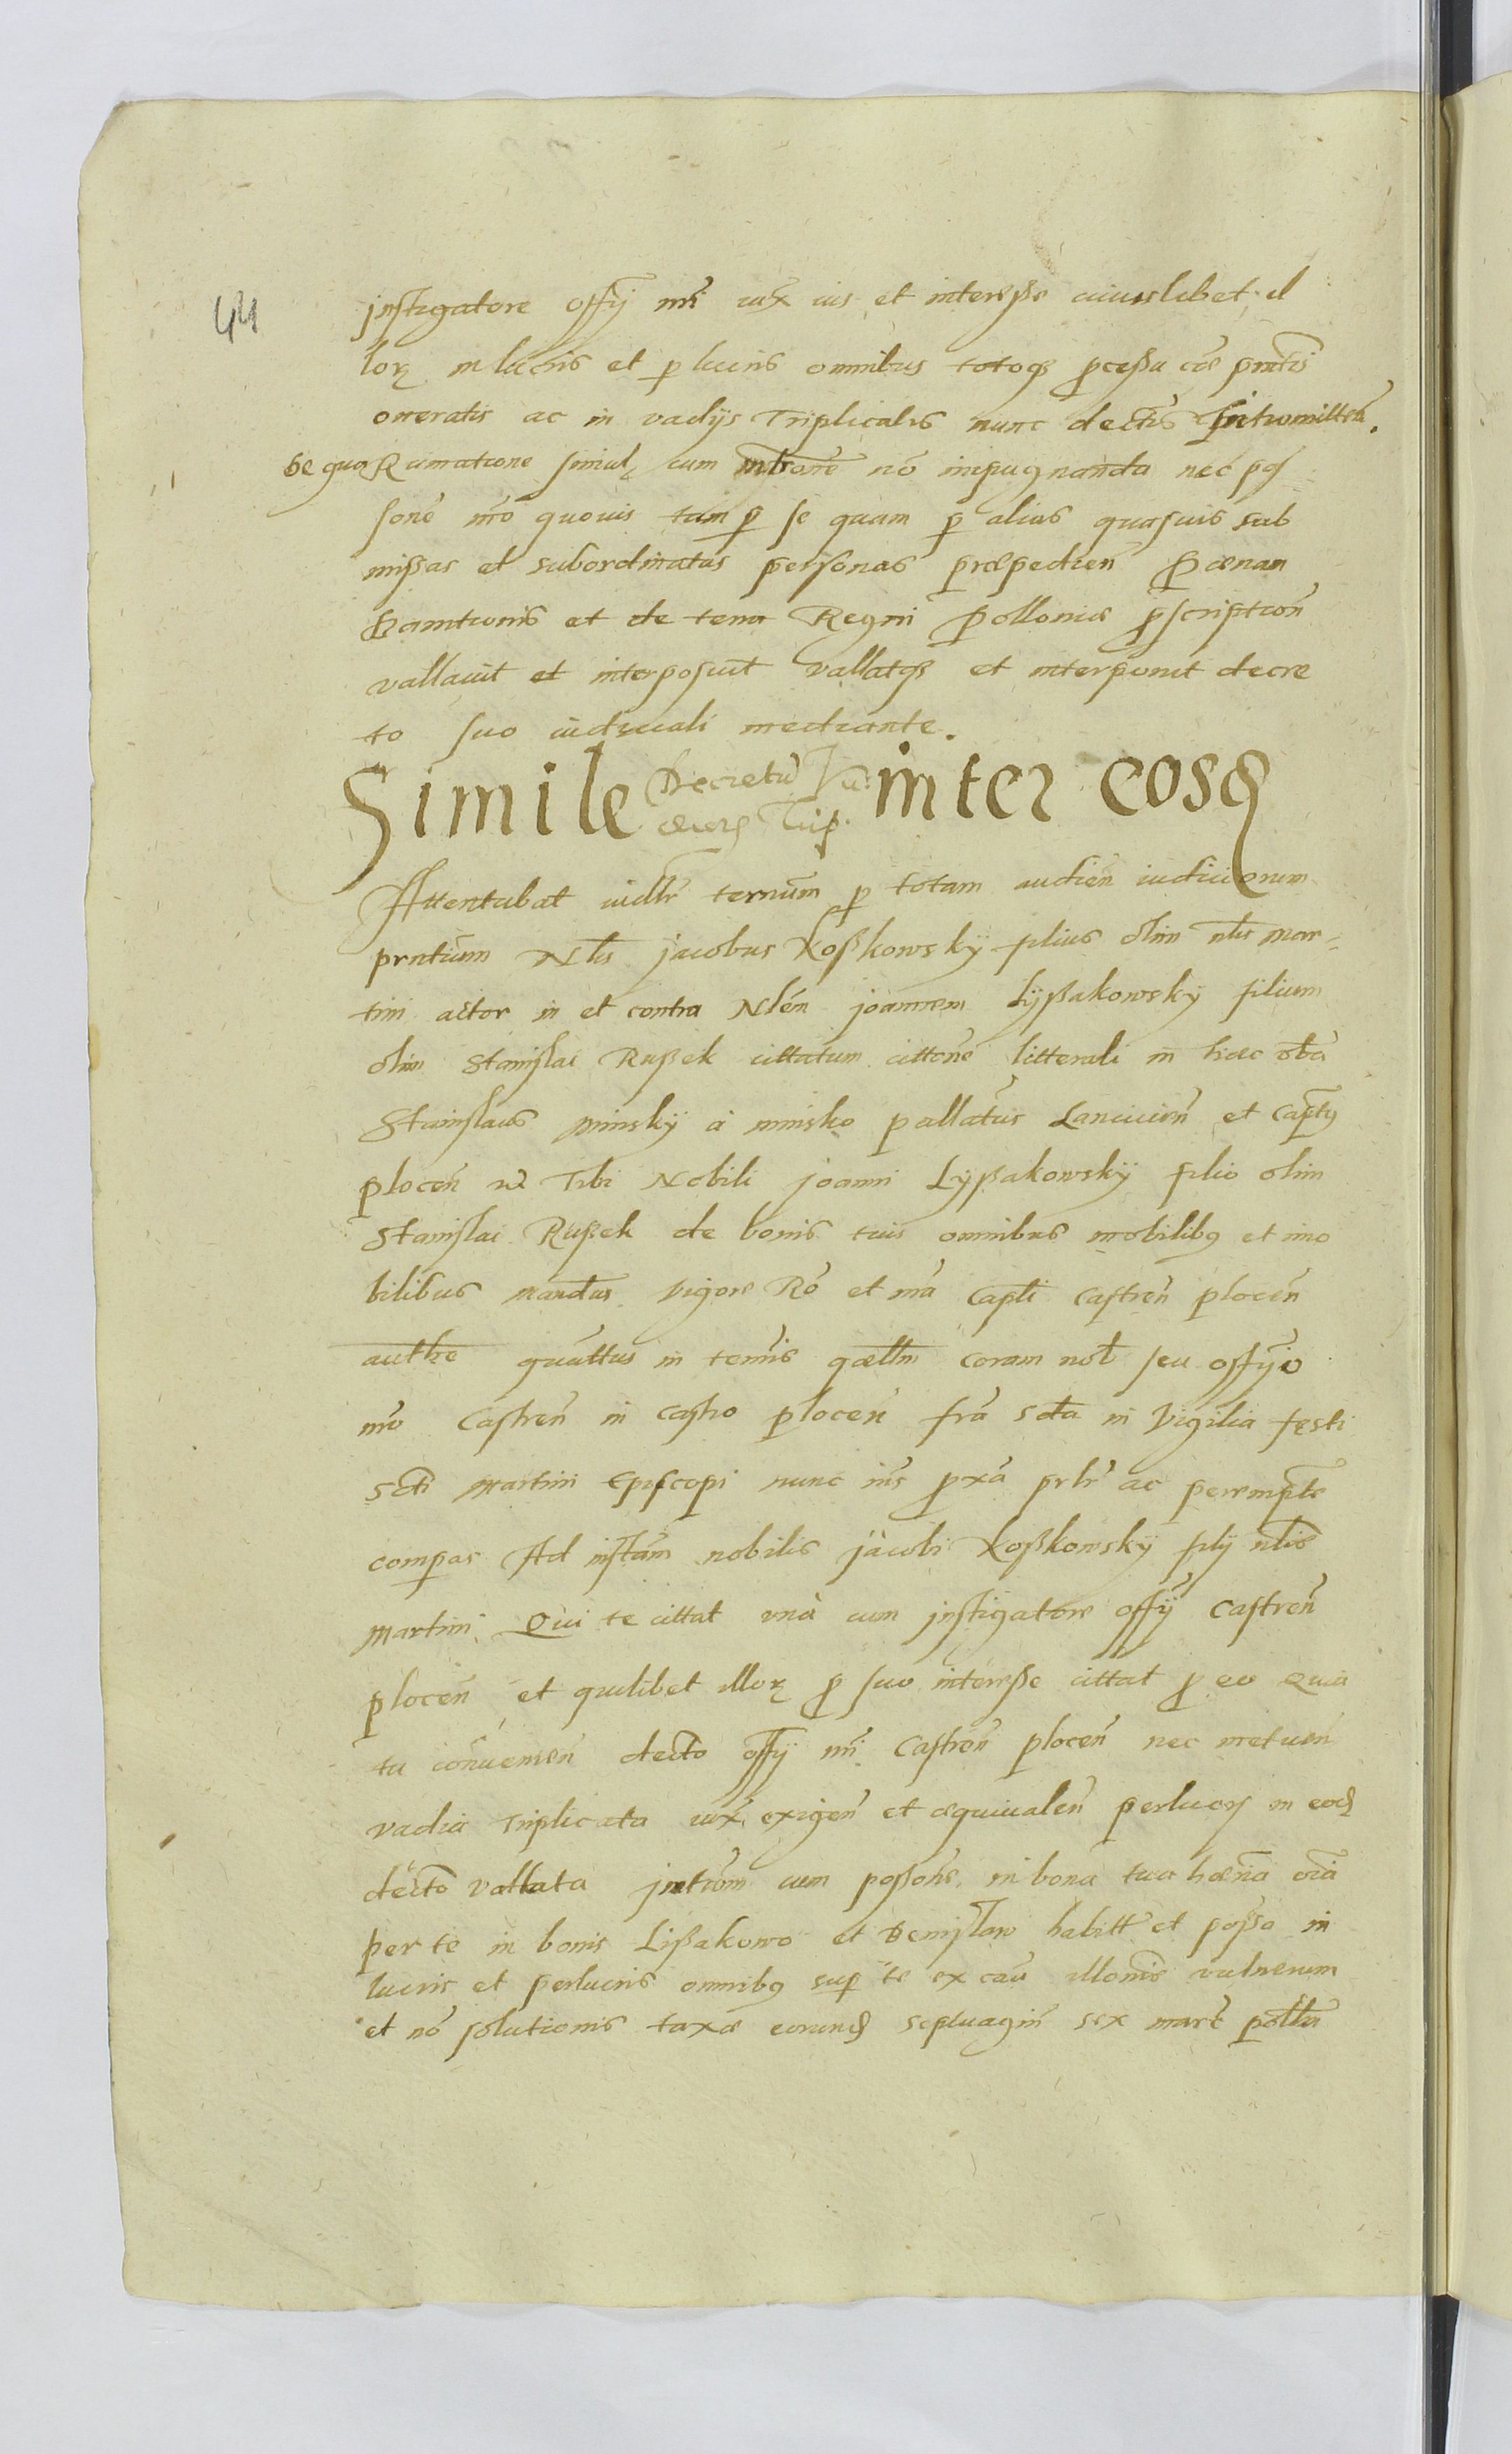 44
instigatore offÿ nri iux ius et interesse cuiuslibet il
lor in lucris et p lucris omnibus totoq pcessu cae pntis
oneratis ac in vadÿs Triplicatis nunc dectis Intromitten.
de qua Rumatione simul cum introne no impugnanda nec pos
sone mo quovis tam p se quam p alias quasuis sub
missas et subordinatas personas praepedien Paenam
Bannitionis et de terra Regni Polloniae pscription
vallavit et interposuit vallatq et interponit decre
to suo iudiciali mediante.
Simile Decretu inter eosd
Attentabat iudlr ternum p totam audien iudiciorum
prntium Nlis Jacobus Koßkowskÿ filius olim nlis Mar-
tini actor in et contra Nlem Joannem Lÿßakowskÿ filium
olim Stanislai Rußek cittatum cittone litterali in haec vba
Stanislaus Minskÿ a Minsko pallatus Lancicien et Capitus
plocen Tibi Nobili Joanni Lÿßakowskÿ filio olim
Stanislai Rußek de bonis tuis omnibus mobilibq et imo
bilibus mandus vigore Ro et ma Capli Castren plocen
authe quattus in termis qaelbm coram nob seu offÿo
nro Castren in Castro plocen fra scda in Vigilia festi
Scti Martini Episcopi nunc ins pxa prlr ac perempte
compas Ad instam nobilis Jacobi Koßkowskÿ filÿ nlis
Martini Qui te cittat una cum instigatore offÿ Castren
plocen et quilibet illor p suo interesse cittat p eo Quia
tu conuenien decto offÿ nri Castren plocen nec metuen
vadia Triplicata iux exigen et aequiualen perlucr in eod
decto vallata introm cum possone in bona tua haerea oia
per te in bonis Lißakowo et habitt et possa in
lucris et perlucris omnibq sup te ex cau illonis vulnerum
et no solutionis taxae eorund septuagin sex marc pollu